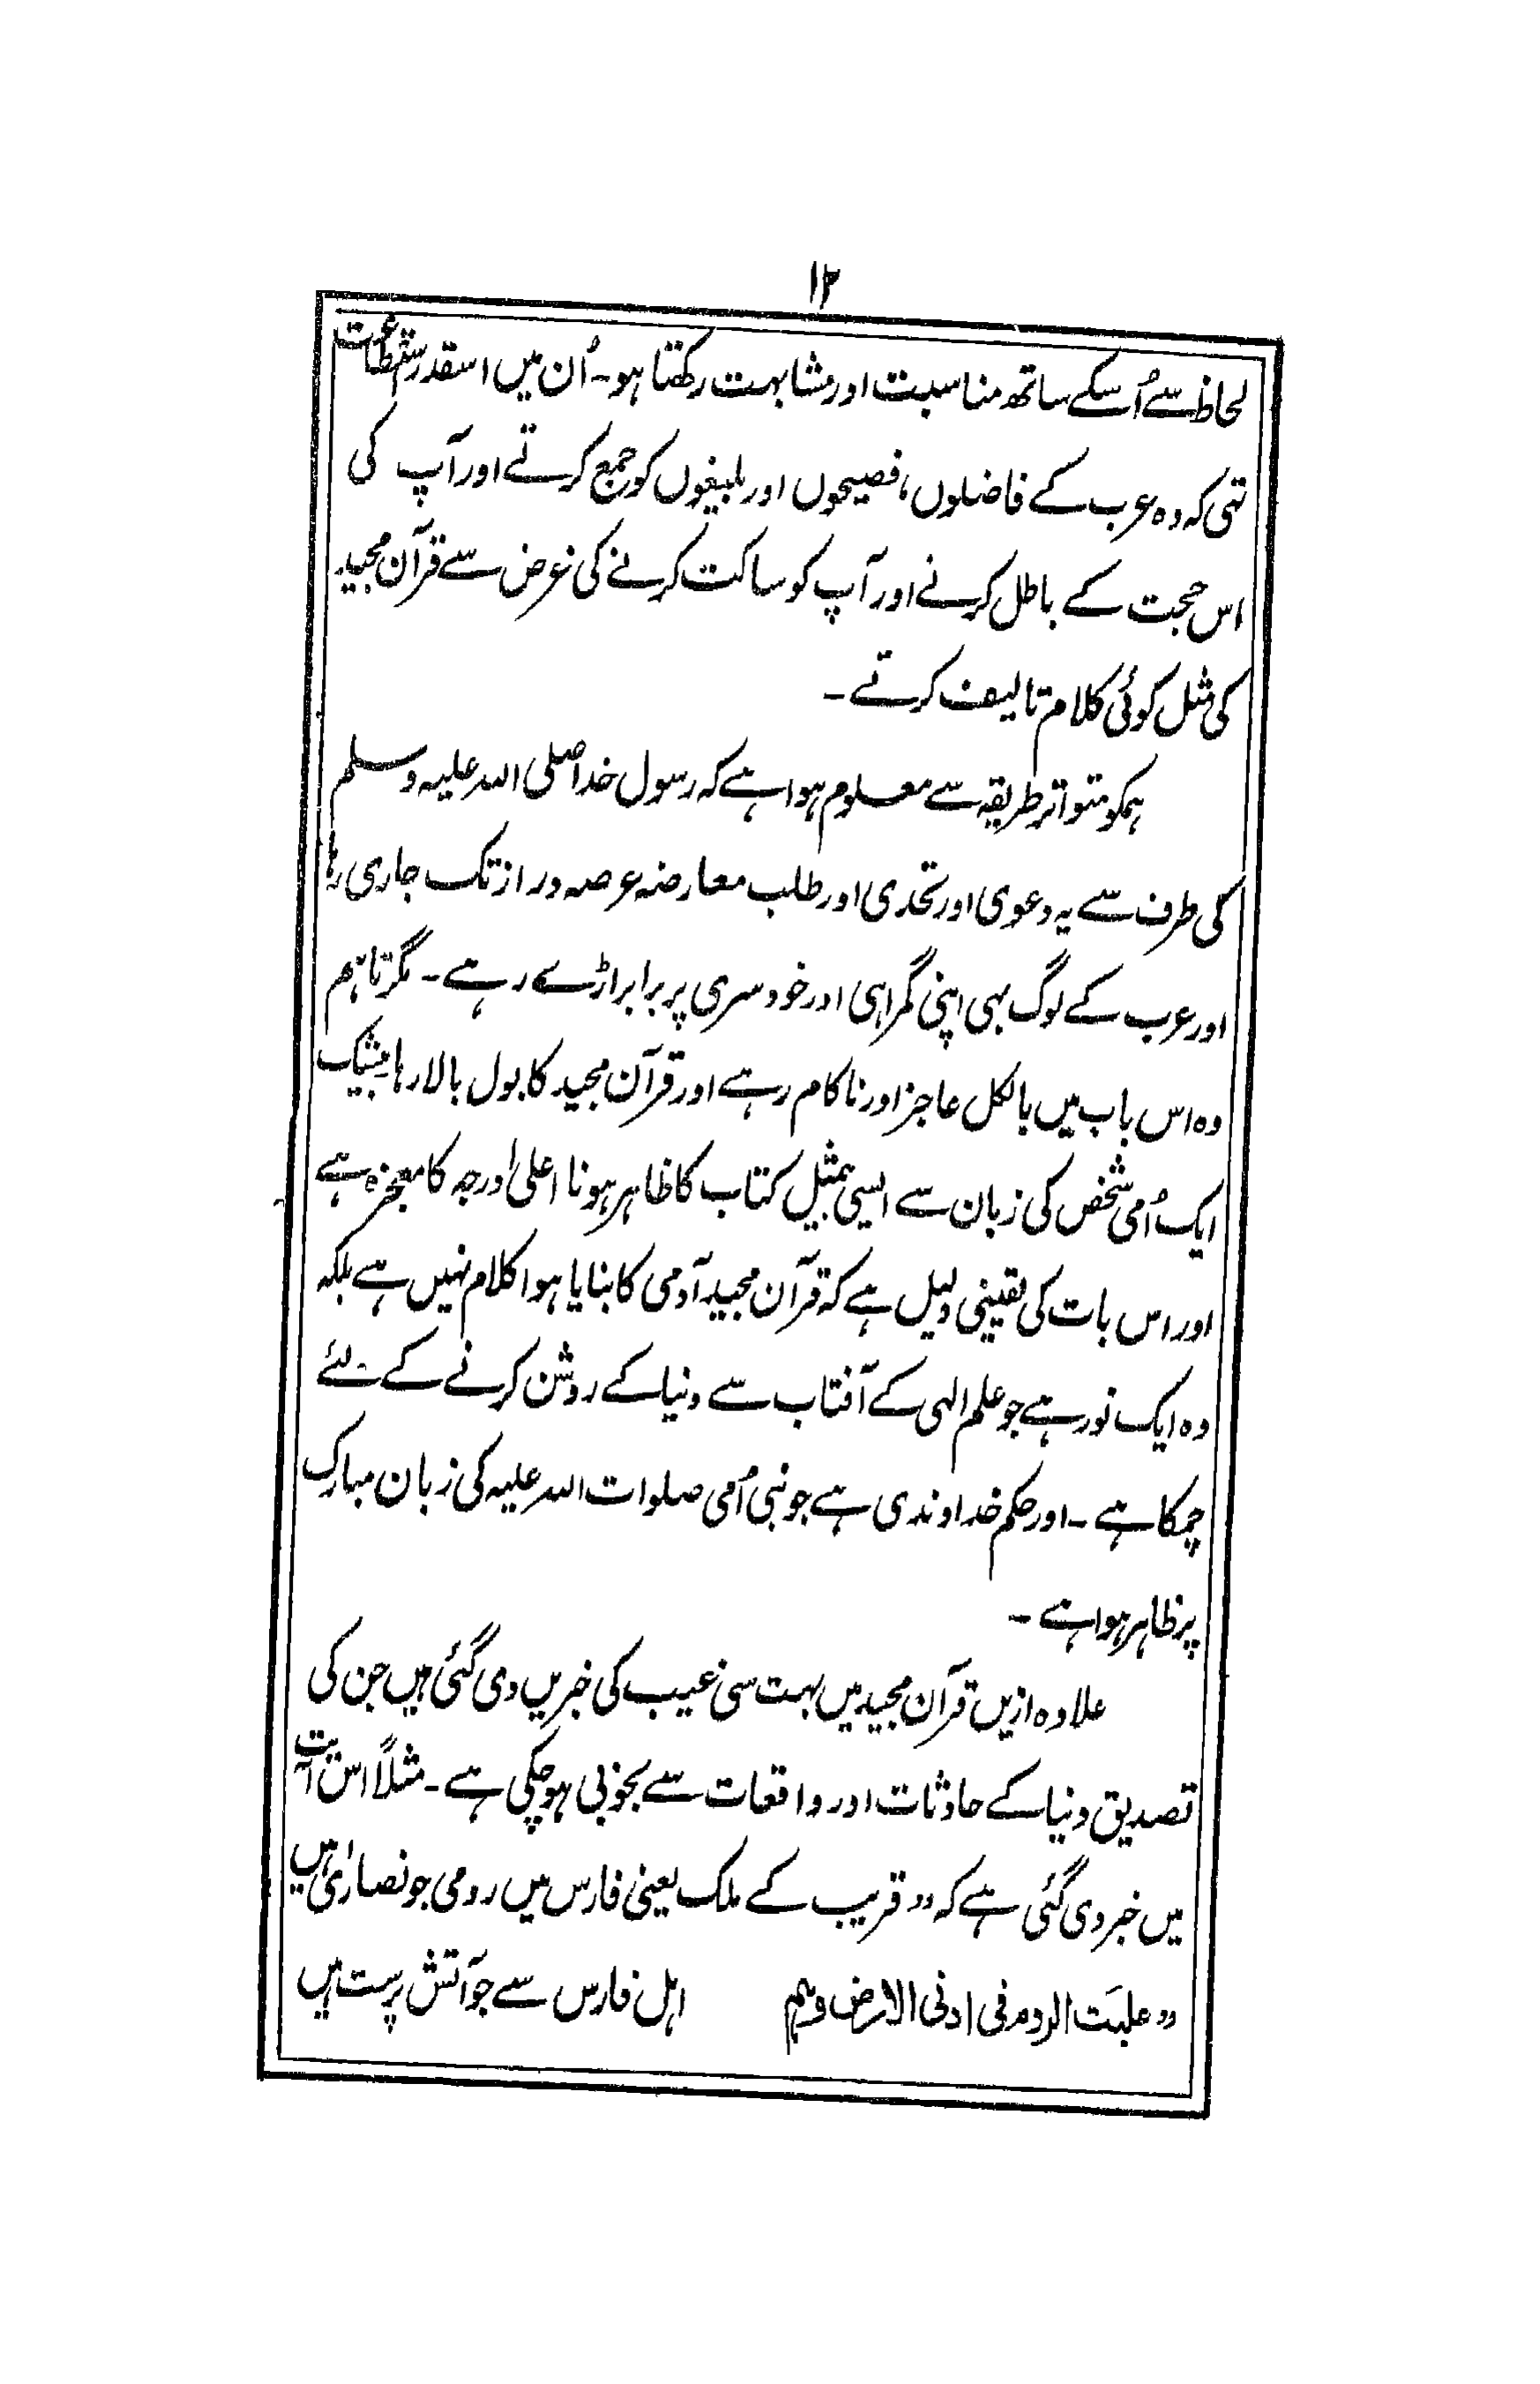 ۱۲
لحاظ سے اُسکے ساتھ مناسبت اور مشابہت رکھتا ہو۔ اُن میں اسقدر استطاعت
تہی کہ وہ عرب کے فاضلوں، فصیحوں اور بلیغوں کو جمع کرتے اور آپ کی
اس حجت کے باطل کرنے اور آپ کو ساکت کرنے کی غرض سے قرآن مجید
کی مثل کوئی کلام تالیف کرتے ۔
ہمکو متواتر طریقہ سے معلوم ہوا ہے کہ رسول خدا صلی اللہ علیہ وسلم
کی طرف سے یہ دعوی اور تحدی اور طلب معارضہ عرصہ دراز تک جاری رہا
اور عرب کے لوگ بہی اپنی گمراہی اور خودسری پر برابر اڑے رہے ۔ مگر تاہم
وہ اس باب میں بالکل عاجز اور ناکام رہے اور قرآن مجید کا بول بالا رہا بیشک
ایک اُمی شخص کی زبان سے ایسی بیمثل کتاب کا ظاہر ہونا اعلیٰ درجہ کا معجزہ ہے
اور اس بات کی یقینی دلیل ہے کہ قرآن مجید آدمی کا بنایا ہوا کلام نہیں ہے بلکہ
وہ ایک نور ہے جو علم الہی کے آفتاب سے دنیا کے روشن کرنے کے لئے
چمکا ہے ۔ اور حکم خداوندی ہے جو نبی اُمی صلوات اللہ علیہ کی زبان مبارک
پر ظاہر ہوا ہے ۔
علاوہ ازیں قرآن مجید میں بہت سی غیب کی خبریں دی گئی ہیں جن کی
تصدیق دنیا کے حادثات اور واقعات سے بخوبی ہو چکی ہے ۔ مثلاً اس آیت
میں خبر دی گئی ہے کہ ’’قریب کے ملک یعنی فارس میں رومی جو نصاریٰ ہیں
’’غلبَت الروم فی ادنی الارض وہم اہل فارس سے جو آتش پرست ہیں